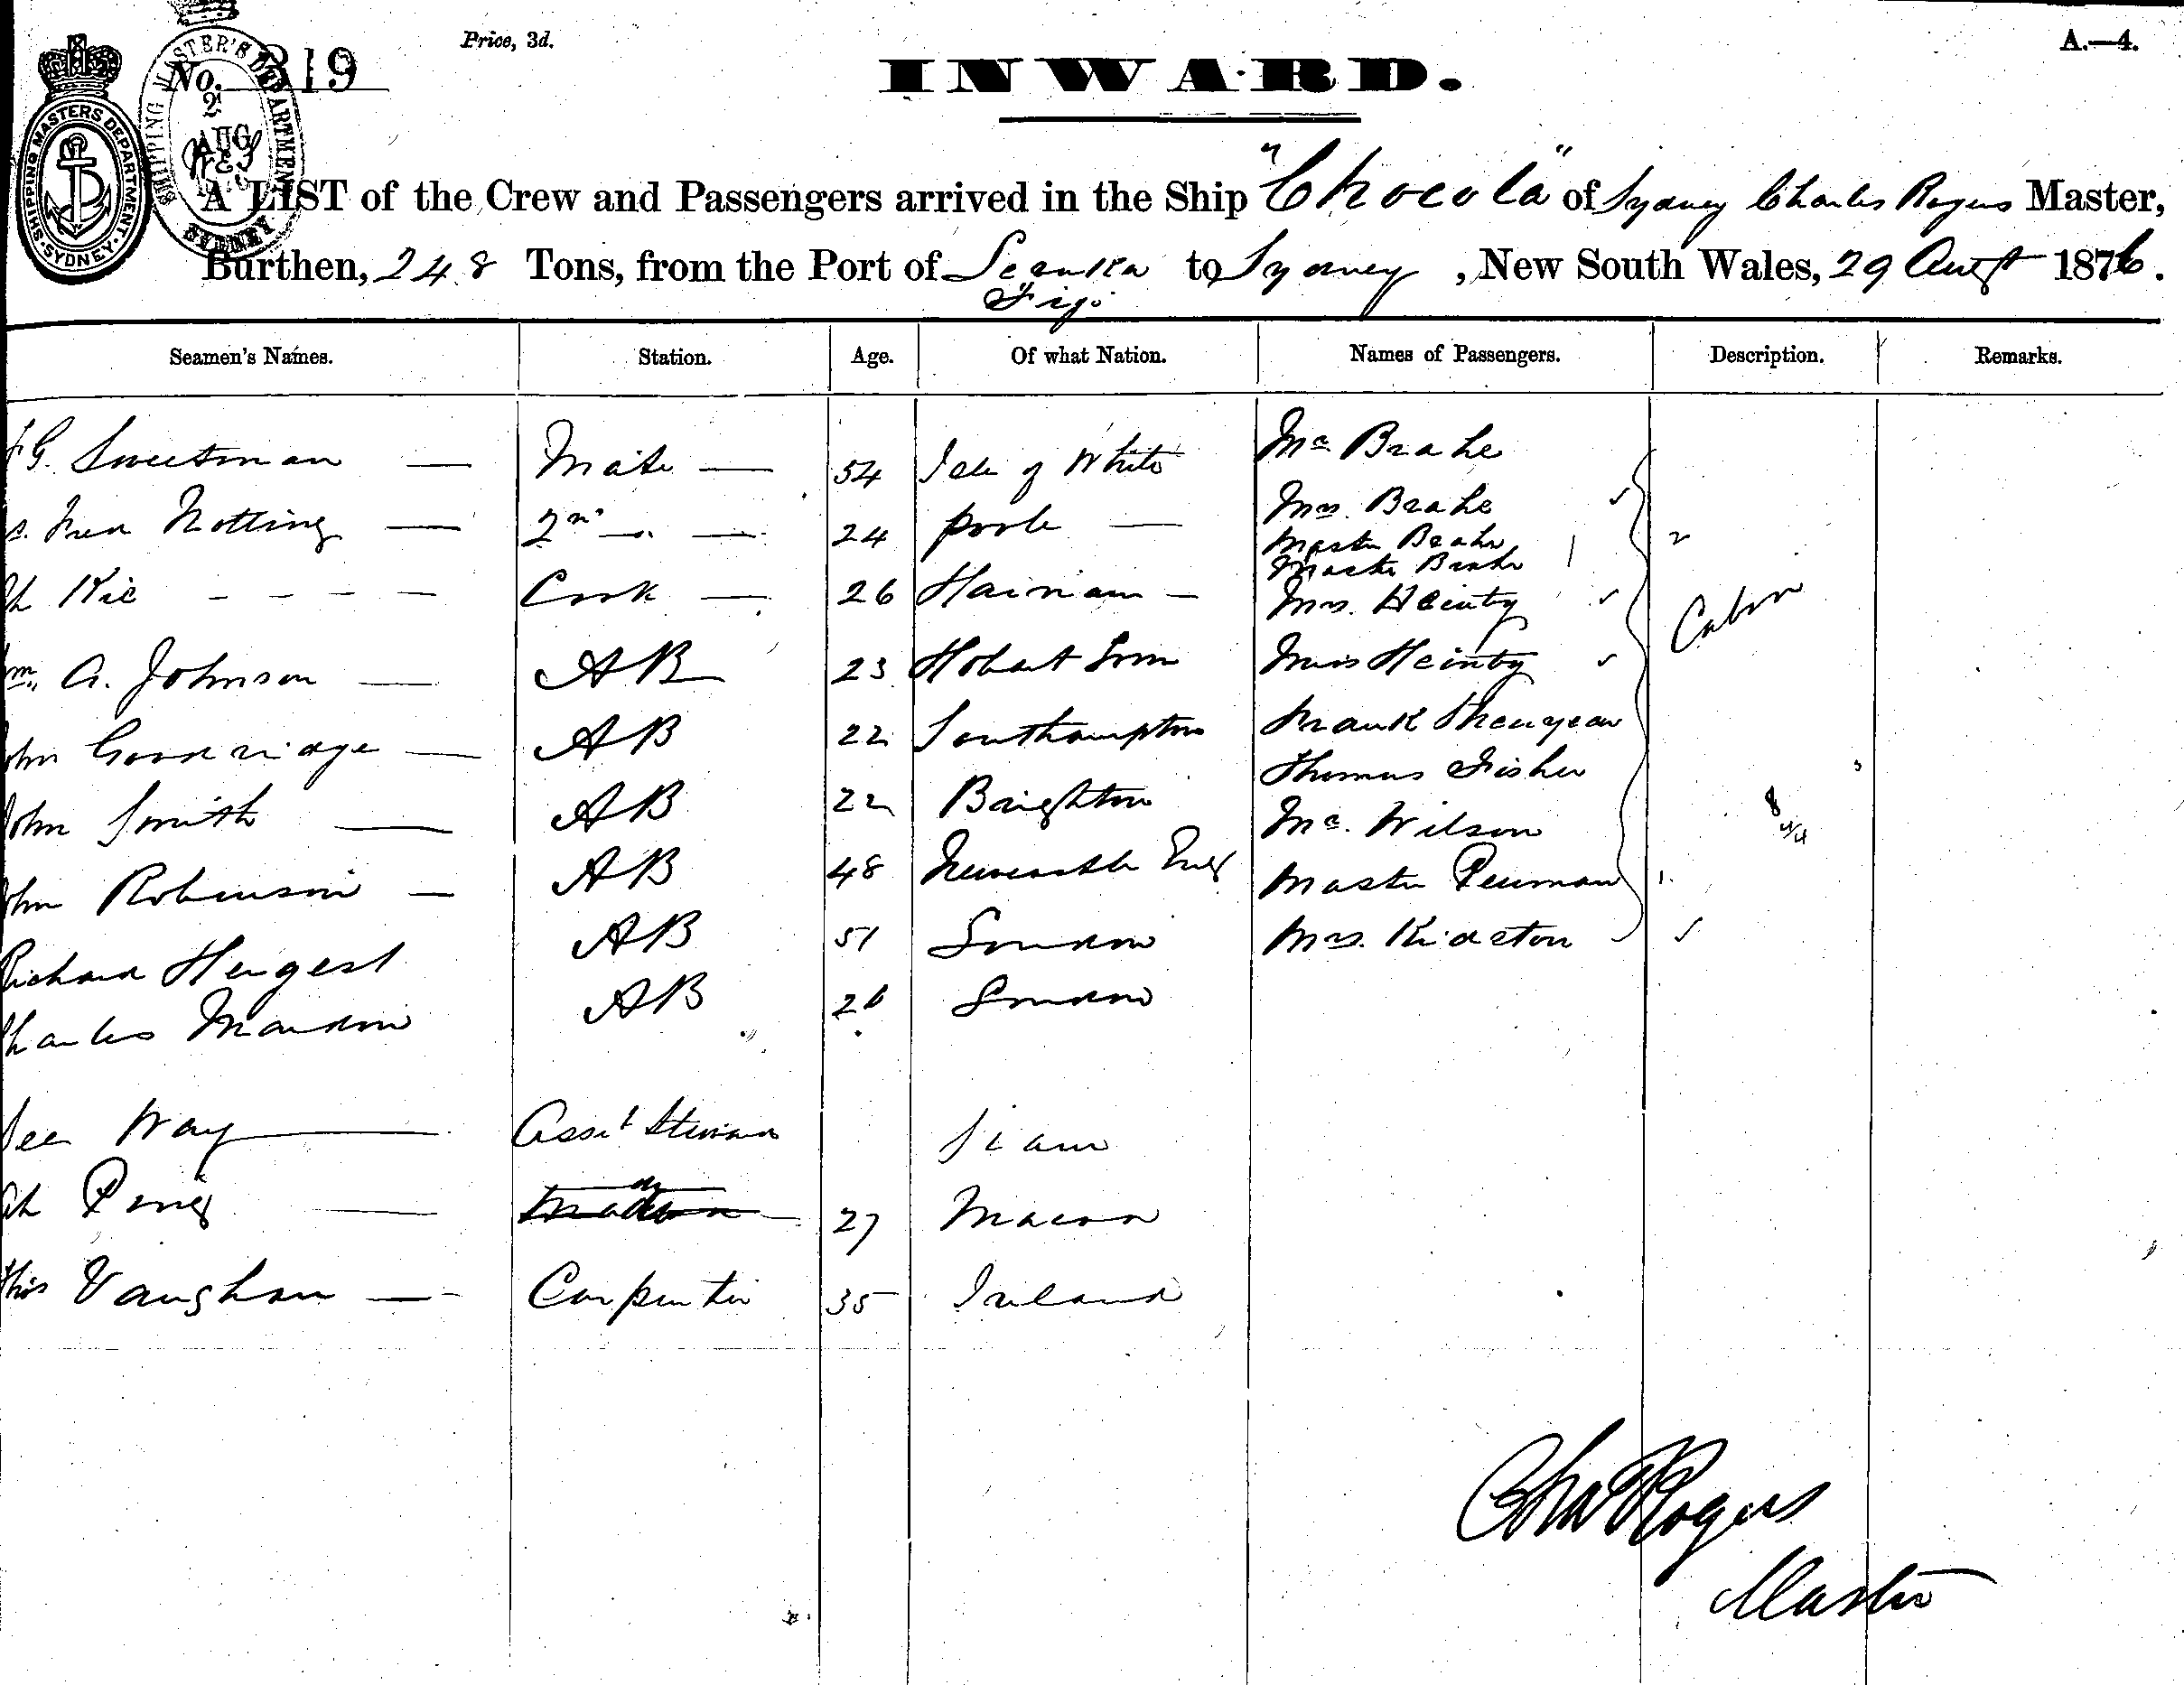 Price, 3d.
A.—4.
No. 319
INWARD.
SHIPPING MASTERS DEPARTMENT · SYDNEY ·
SHIPPING MASTER'S DEPARTMENT
2
AUG
SYDNEY
A LIST of the Crew and Passengers arrived in the Ship "Chocola" of Sydney Charles Rogers Master,
Burthen, 248 Tons, from the Port of Levuka to Sydney, New South Wales, 29 Augt 1876.
Fiji
Seamen's Names. Station. Age. Of what Nation. Names of Passengers. Description. Remarks.
G. Sweetman — Mate — 54 Isle of White Mr Brahe
Notting — 2nd — 24 Poole — Mrs. Brahe
Master Brahe
Master Brahe
Ah Kic - - - - Cook — 26 Hainam — Mrs. Heinty Cabin
Wm. A. Johnson — AB 23 Hobart Town Miss Heinty
John Goodridge — AB 22 Southampton Frank
Thomas Fisher
John Smith — AB 22 Brighton Mr. Wilson
8
John Robinson — AB 48 Newcastle Eng Master Penman
Richard Hengest AB 51 London Mrs. Kidston
Charles AB 26 London
See Way — Asst Steward Siam
Ah Pong — do 27 Macao
Thos Vaughan — Carpenter 35 Ireland
Chas Rogers
Master